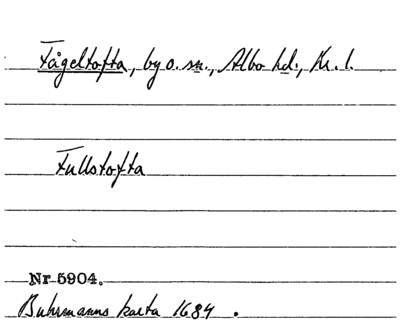 Fågeltofta, by o. sn., Albo hd., Kr. l.
Fullstofta
Nr 5904.
Buhrmanns karta 1684.